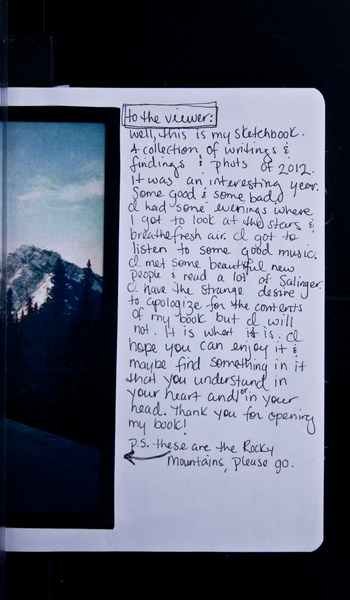 to the viewer:
well, this is my sketchbook.
A collection of writings &
findings & phots of 2012.
It was an interesting year.
Some good & some bad,
I had some evenings where
I got to look at the stars &
breathe fresh air. I got to
listen to some good music.
I met some beautiful new
people & read a lot of Salinger.
I have the strange desire
to apologize for the contents
of my book but I will
not. It is what it is. I
hope you can enjoy it &
maybe find something in it
that you understand in
your heart and/or in your
head. Thank you for opening
my book!
p.s. these are the Rocky
Mountains, please go.